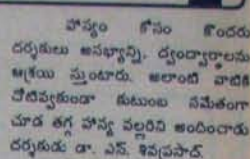 హాస్యం కోసం కొందరు
దర్శకులు అసభ్యాన్ని, ద్వంద్వార్థాలను
ఆశ్రయి స్తుంటారు. అలాంటి వాటికి
చోటివ్వకుండా కుటుంబ సమేతంగా
చూడ తగ్గ హాస్య వల్లరిని అందించాడు
దర్శకుడు డా. ఎన్. శివప్రసాద్.